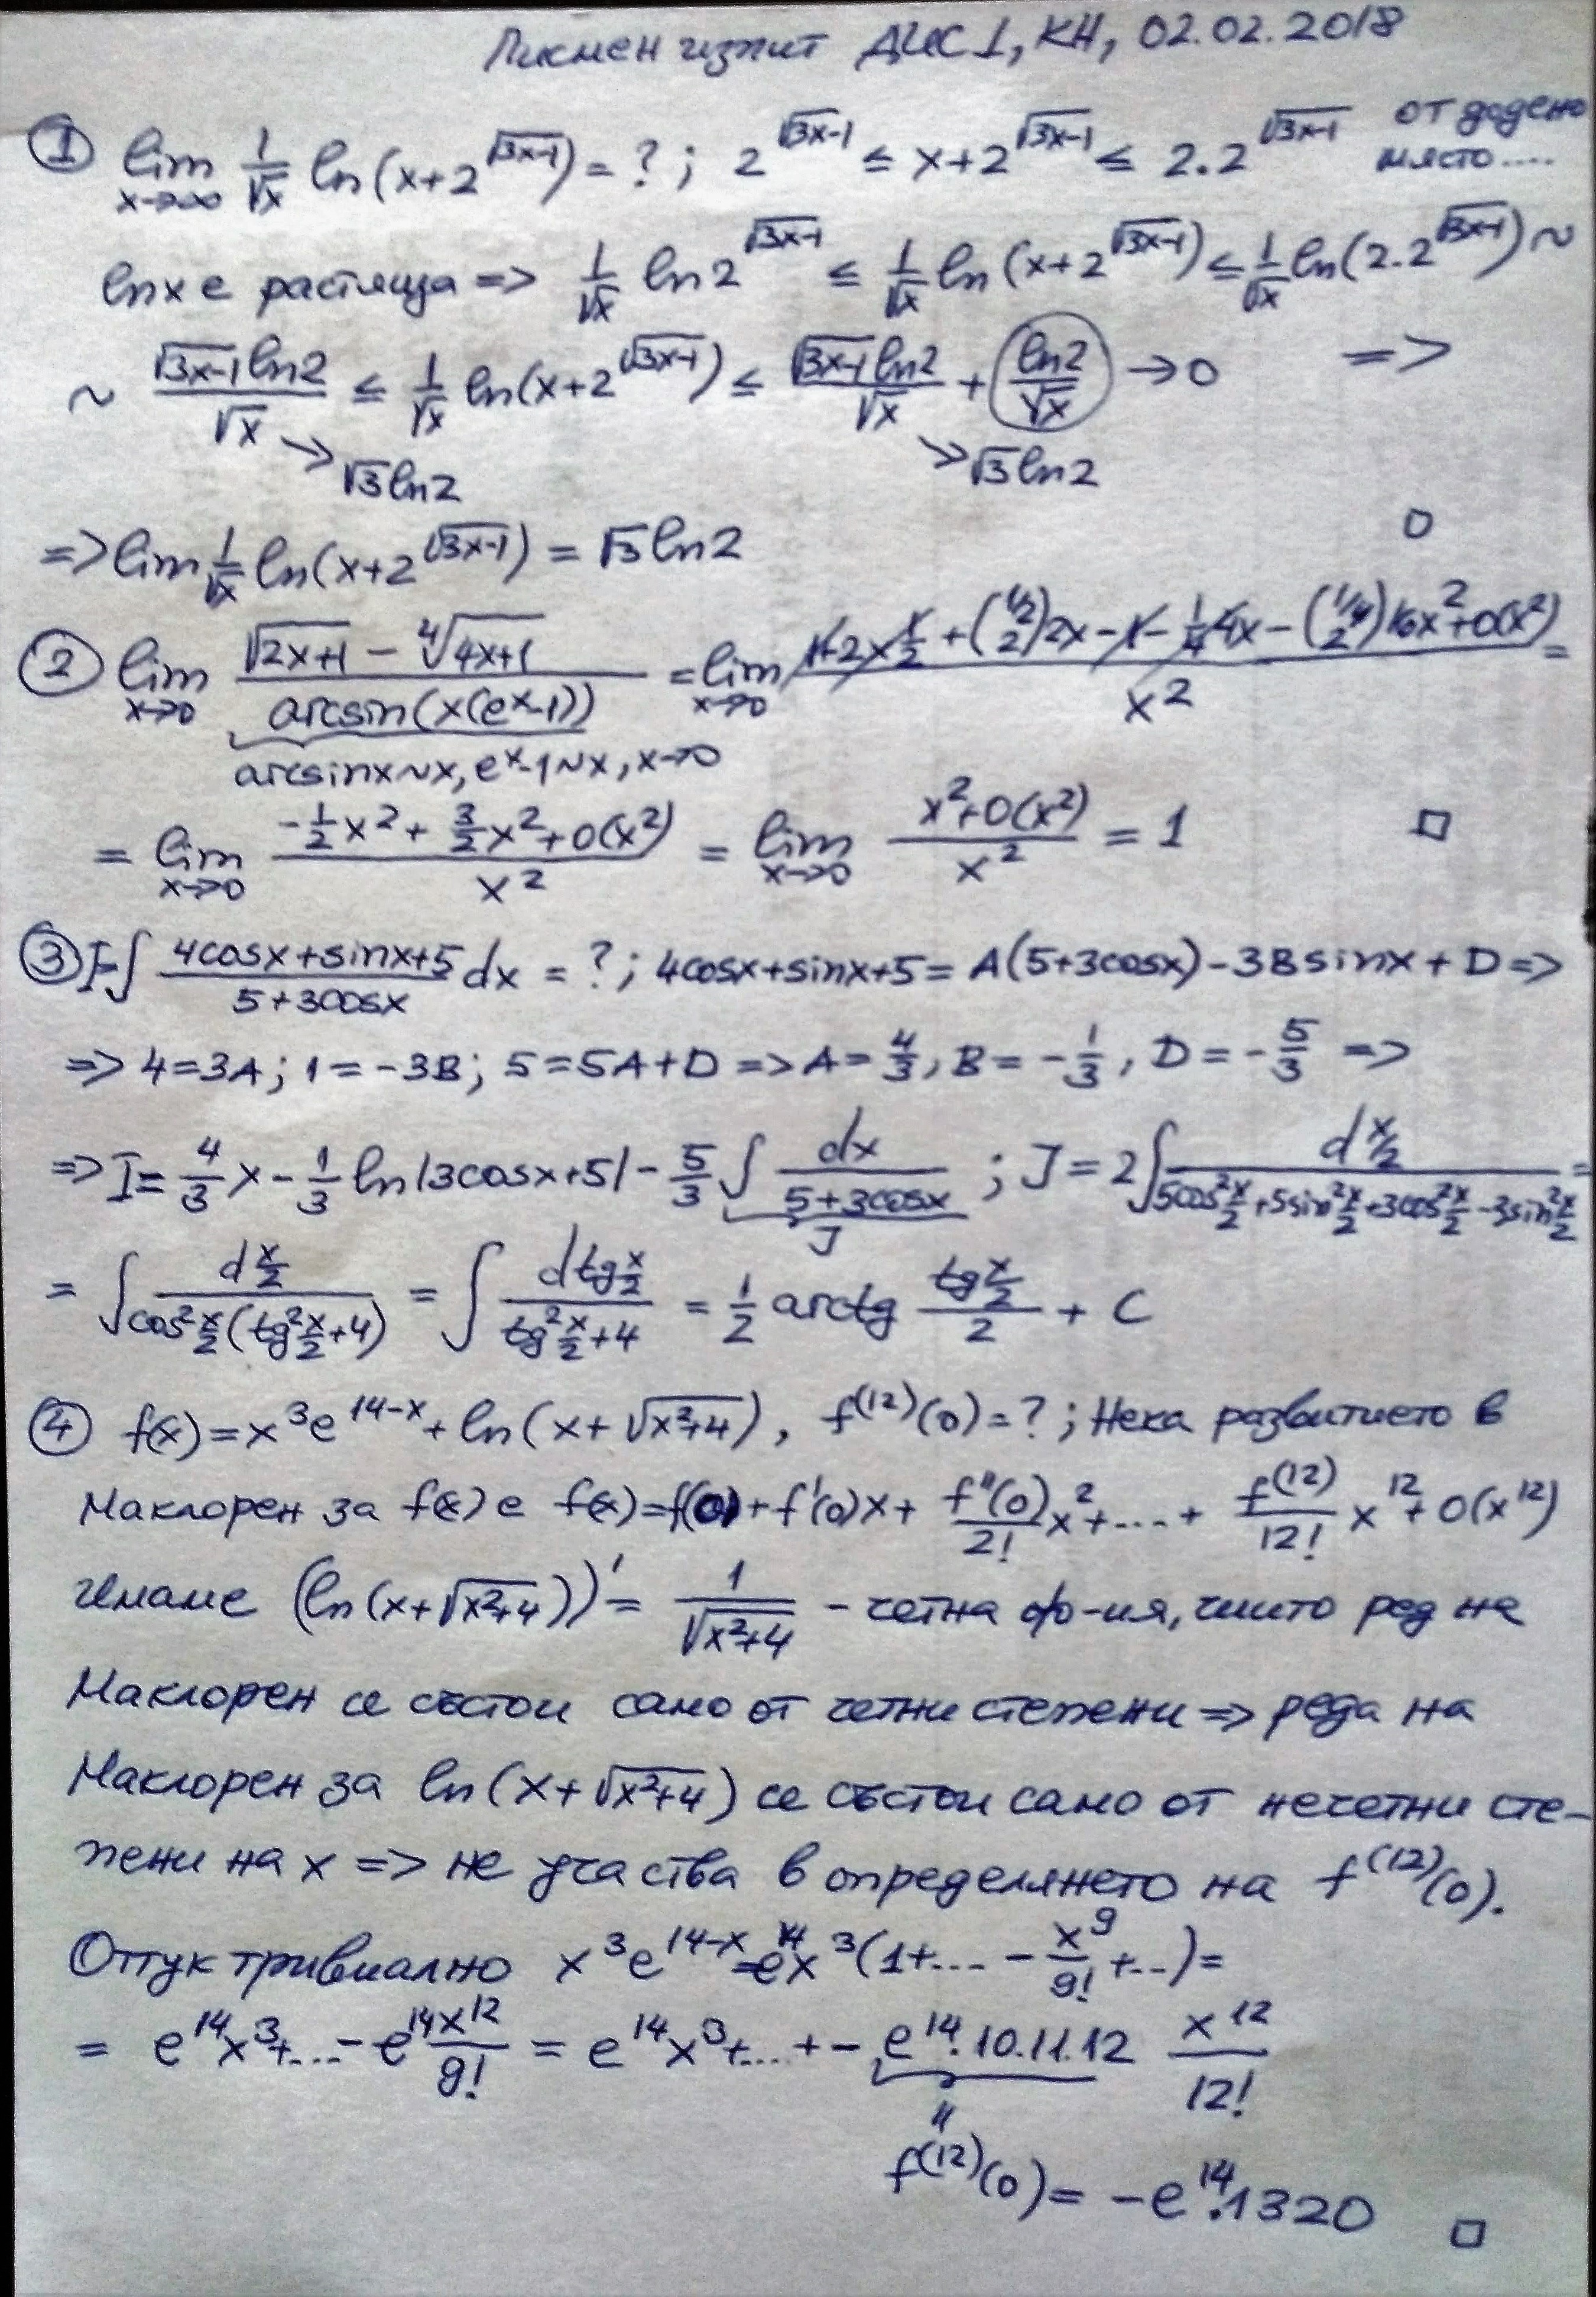 Писмен изпит ДИС 1, КН, 02.02.2018
① lim x→∞ 1/√x ln(x+2^√(3x-1)) = ? ; 2^√(3x-1) ≤ x+2^√(3x-1) ≤ 2.2^√(3x-1) от дадено място....
lnx е растяща => 1/√x ln2^√(3x-1) ≤ 1/√x ln(x+2^√(3x-1)) ≤ 1/√x ln(2.2^√(3x-1)) ~
~ √(3x-1)ln2/√x ≤ 1/√x ln(x+2^√(3x-1)) ≤ √(3x-1)ln2/√x + ln2/√x → 0 =>
→ √3ln2 → √3ln2
=> lim 1/√x ln(x+2^√(3x-1)) = √3ln2 □
② lim x→0 (√(2x+1) - ⁴√(4x+1))/arcsin(x(e^x-1)) = lim x→0 (1+2x 1/2 + (1/2 2)2x - 1 - 1/4 4x - (1/4 2)16x²+o(x²))/x² =
arcsinx~x, e^x-1~x, x→0
= lim x→0 (-1/2x² + 3/2x²+o(x²))/x² = lim x→0 (x²+o(x²))/x² = 1 □
③ I=∫ (4cosx+sinx+5)/(5+3cosx) dx = ? ; 4cosx+sinx+5 = A(5+3cosx)-3Bsinx+D =>
=> 4=3A; 1=-3B; 5=5A+D => A=4/3, B=-1/3, D=-5/3 =>
=> I=4/3x - 1/3 ln|3cosx+5| - 5/3 ∫ dx/(5+3cosx) ; J = 2∫ d x/2 /(5cos²x/2+5sin²x/2+3cos²x/2-3sin²x/2) =
J
= ∫ d x/2 /(cos²x/2(tg²x/2+4)) = ∫ dtg x/2 /(tg²x/2+4) = 1/2 arctg (tg x/2)/2 + C
④ f(x)=x³e^(14-x)+ln(x+√(x²+4)), f^(12)(0)=? ; Нека развитието в
Маклорен за f(x) е f(x)=f(0)+f'(0)x+ f''(0)/2! x²+....+ f^(12)/12! x^12+o(x^12)
имаме (ln(x+√(x²+4)))' = 1/√(x²+4) - четна ф-ия, чиито ред на
Маклорен се състои само от четни степени => реда на
Маклорен за ln(x+√(x²+4)) се състои само от нечетни сте-
пени на x => не участва в определянето на f^(12)(0).
Оттук тривиално x³e^(14-x)=e^14x³(1+.... - x^9/9! +...)=
= e^14x³+...-e^14x^12/9! = e^14x³+...+-e^14.10.11.12 x^12/12!
"
f^(12)(0) = -e^14.1320 □